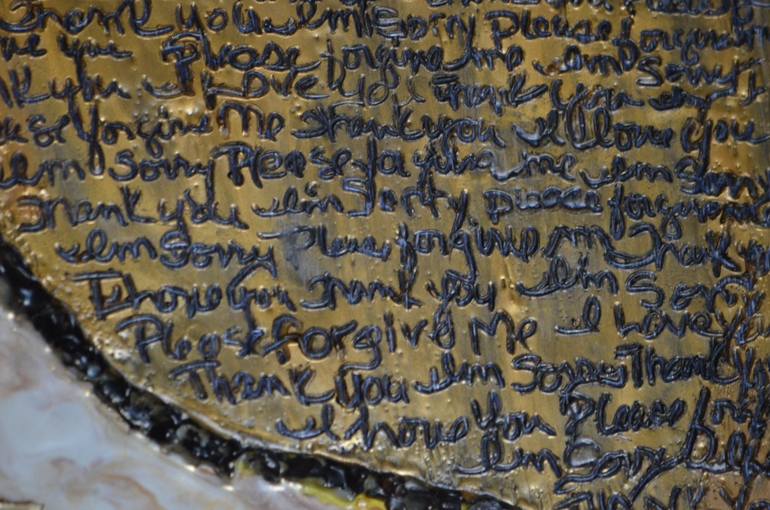 Thank you I'm Sorry Please forgive
you Please forgive me I'm Sorry
you I Love You Thank you
forgive Me Thank you I love you
I'm Sorry Please forgive me I'm Sorry
Thank you I'm Sorry please forgive me
I'm Sorry Please forgive me Thank you
I love you Thank you I'm Sorry
Please forgive Me I Love you
Thank you I'm Sorry Thank you
I love you Please
I'm Sorry
Thank